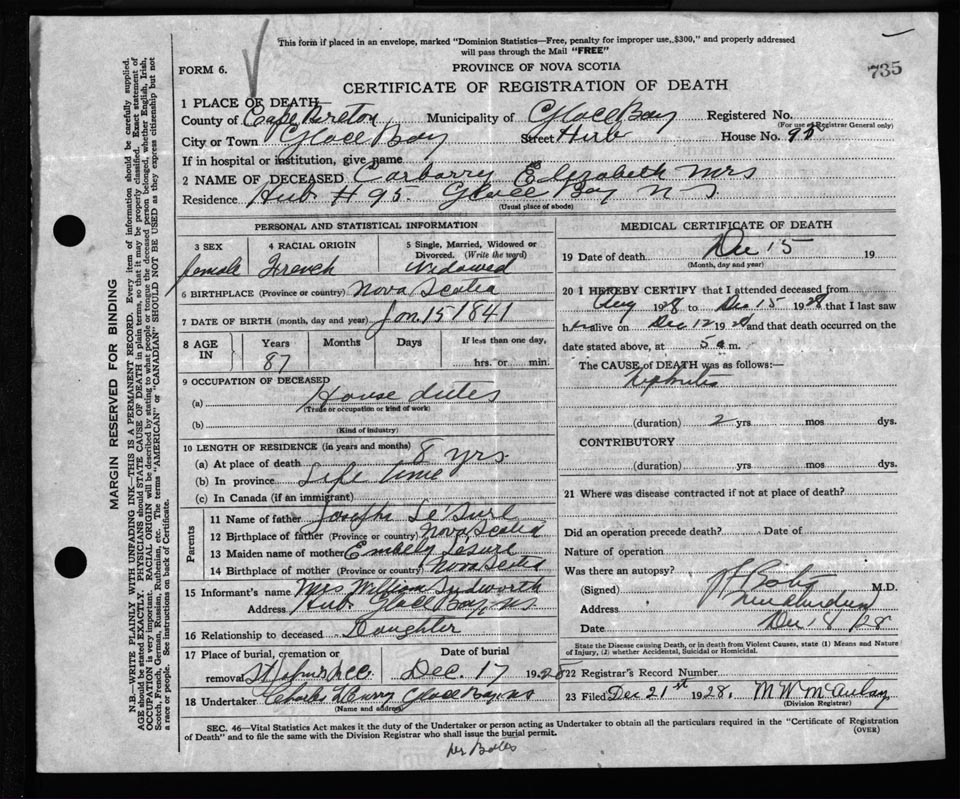 This form if placed in an envelope, marked "Dominion Statistics—Free, penalty for improper use, $300," and properly addressed
will pass through the Mail "FREE"
FORM 6.
PROVINCE OF NOVA SCOTIA
735
CERTIFICATE OF REGISTRATION OF DEATH
1 PLACE OF DEATH
County of Cape Breton Municipality of Glace Bay Registered No.
(For use of Registrar General only)
City or Town Glace Bay Street Hub House No. 95
If in hospital or institution, give name
2 NAME OF DECEASED Carbarry Elizabeth Mrs
Residence Hub # 95. Glace Bay N S
(Usual place of abode)
PERSONAL AND STATISTICAL INFORMATION
3 SEX 4 RACIAL ORIGIN 5 Single, Married, Widowed or
Divorced. (Write the word)
female French Widowed
6 BIRTHPLACE (Province or country) Nova Scotia
7 DATE OF BIRTH (month, day and year) Jan 15 1841
8 AGE IN Years Months Days If less than one day,
87 hrs. or min.
9 OCCUPATION OF DECEASED
(a) House duties
(Trade or occupation or kind of work)
(b)
(Kind of industry)
10 LENGTH OF RESIDENCE (in years and months)
(a) At place of death 8 yrs.
(b) In province Life time
(c) In Canada (if an immigrant)
Parents
11 Name of father Joseph
12 Birthplace of father (Province or country) Nova Scotia
13 Maiden name of mother
14 Birthplace of mother (Province or country) Nova Scotia
15 Informant's name Mrs William
Address Hub Glace Bay, NS.
16 Relationship to deceased Daughter
17 Place of burial, cremation or Date of burial
removal Dec. 17 1928
18 Undertaker Charles Curry Glace Bay, NS
(Name and address)
MEDICAL CERTIFICATE OF DEATH
19 Date of death Dec 15 19
(Month, day and year)
20 I HEREBY CERTIFY that I attended deceased from
Aug 1928 to Dec 15 1928 that I last saw
her alive on Dec 12 1928 and that death occurred on the
date stated above, at 5 a m.
The CAUSE OF DEATH was as follows:—
Nephritis
(duration) 2 yrs mos dys.
CONTRIBUTORY
(duration) yrs mos dys.
21 Where was disease contracted if not at place of death?
Did an operation precede death? Date of
Nature of operation
Was there an autopsy?
(Signed) M.D.
Address
Date Dec 18/28
State the Disease causing Death, or in death from Violent Causes, state (1) Means and Nature
of Injury, (2) whether Accidental, Suicidal or Homicidal.
22 Registrar's Record Number
23 Filed Dec 21st 1928. M W McAulay
(Division Registrar)
SEC. 46—Vital Statistics Act makes it the duty of the Undertaker or person acting as Undertaker to obtain all the particulars required in the "Certificate of Registration
of Death" and to file the same with the Division Registrar who shall issue the burial permit. (OVER)
MARGIN RESERVED FOR BINDING
N.B.—WRITE PLAINLY WITH UNFADING INK—THIS IS A PERMANENT RECORD. Every item of information should be carefully supplied.
AGE should be stated EXACTLY. PHYSICIANS should STATE CAUSE OF DEATH in plain terms, so that it may be properly classified. Exact statement of
OCCUPATION is very important. RACIAL ORIGIN will be described by stating to what people or tongue the deceased person belonged, whether English, Irish,
Scotch, French, German, Russian, Ruthenian, etc. The terms "AMERICAN" or "CANADIAN" SHOULD NOT BE USED as they express citizenship but not
a race or people. See instructions on back of Certificate.